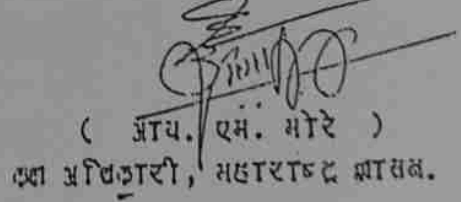 ( आय. एम. मोरे )
कक्ष अधिकारी, महाराष्ट्र शासन.